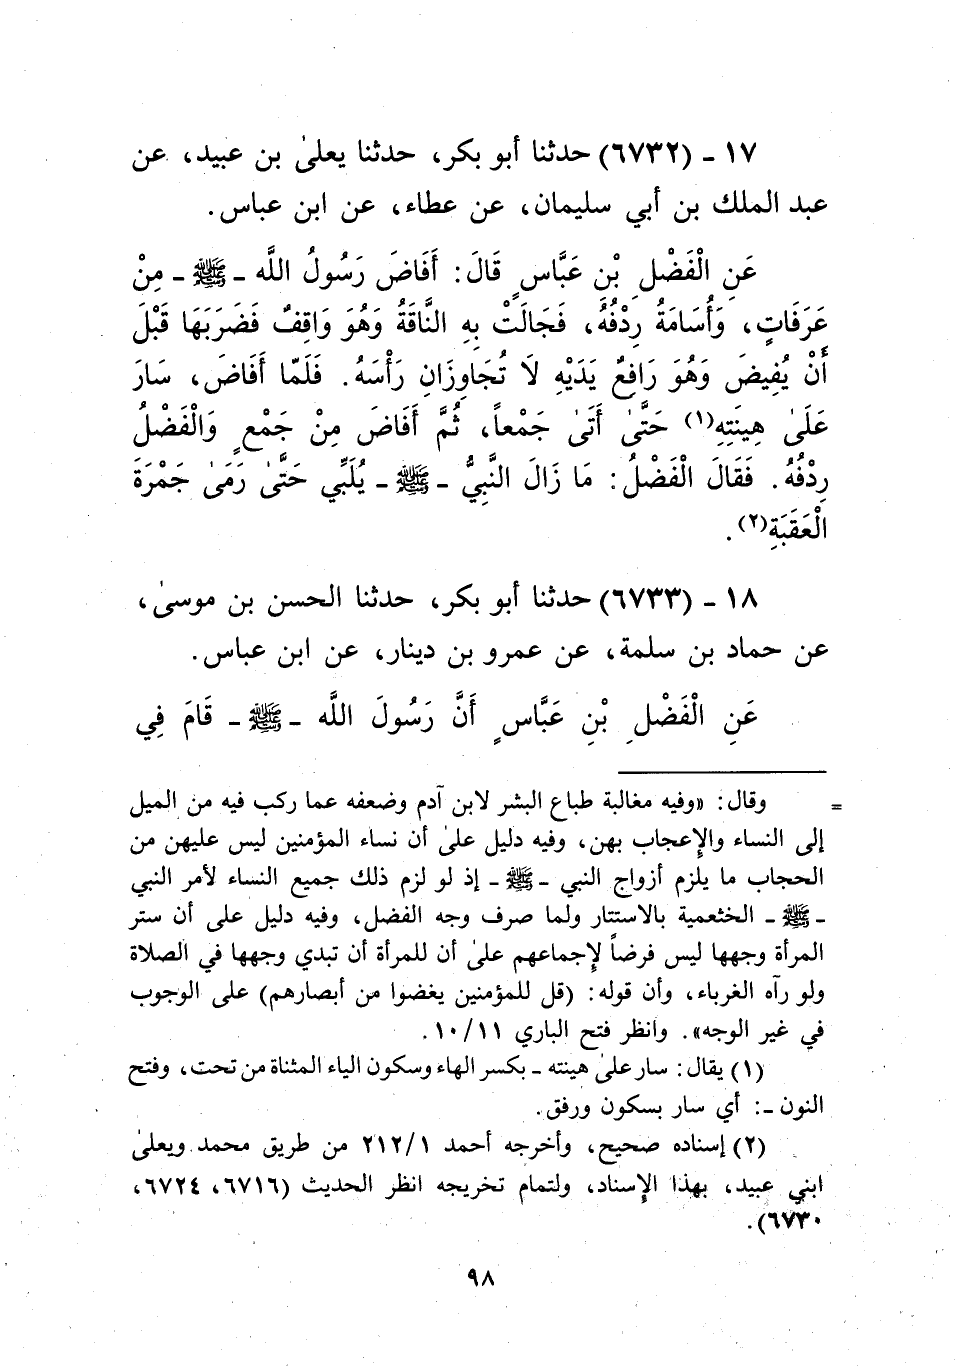 ١٧ ـ (٦٧٣٢) حدثنا أبو بكر، حدثنا يعلىٰ بن عبيد، عن
عبد الملك بن أبي سليمان، عن عطاء، عن ابن عباس.
عَنِ الْفَضْلِ بْنِ عَبَّاسٍ قَالَ: أَفَاضَ رَسُولُ اللَّه ـ ﷺ ـ مِنْ
عَرَفَاتٍ، وَأُسَامَةُ رِدْفُهُ، فَجَالَتْ بِهِ النَّاقَةُ وَهُوَ وَاقِفٌ فَضَرَبَهَا قَبْلَ
أَنْ يُفِيضَ وَهُوَ رَافِعٌ يَدَيْهِ لَا تُجَاوِزَانِ رَأْسَهُ. فَلَمّا أَفَاضَ، سَارَ
عَلَىٰ هِينَتِهِ(١) حَتَّىٰ أَتَىٰ جَمْعاً، ثُمَّ أَفَاضَ مِنْ جَمْعٍ وَالْفَضْلُ
رِدْفُهُ. فَقَالَ الْفَضْلُ: مَا زَالَ النَّبِيُّ ـ ﷺ ـ يُلَبِّي حَتَّىٰ رَمَىٰ جَمْرَةَ
الْعَقَبَةِ(٢).
١٨ ـ (٦٧٣٣) حدثنا أبو بكر، حدثنا الحسن بن موسىٰ،
عن حماد بن سلمة، عن عمرو بن دينار، عن ابن عباس.
عَنِ الْفَضْلِ بْنِ عَبَّاسٍ أَنَّ رَسُولَ اللَّه ـ ﷺ ـ قَامَ فِي
= وقال: «وفيه مغالبة طباع البشر لابن آدم وضعفه عما ركب فيه من الميل
إلى النساء والإعجاب بهن، وفيه دليل علىٰ أن نساء المؤمنين ليس عليهن من
الحجاب ما يلزم أزواج النبي ـ ﷺ ـ إذ لو لزم ذلك جميع النساء لأمر النبي
ـ ﷺ ـ الخثعمية بالاستتار ولما صرف وجه الفضل، وفيه دليل على أن ستر
المرأة وجهها ليس فرضاً لإجماعهم علىٰ أن للمرأة أن تبدي وجهها في الصلاة
ولو رآه الغرباء، وأن قوله: (قل للمؤمنين يغضوا من أبصارهم) على الوجوب
في غير الوجه». وانظر فتح الباري ١٠/١١.
(١) يقال: سار علىٰ هينته ـ بكسر الهاء وسكون الياء المثناة من تحت، وفتح
النون ـ: أي سار بسكون ورفق.
(٢) إسناده صحيح، وأخرجه أحمد ٢١٢/١ من طريق محمد ويعلىٰ
ابني عبيد، بهذا الإسناد، ولتمام تخريجه انظر الحديث (٦٧١٦، ٦٧٢٤،
٦٧٣٠).
٩٨